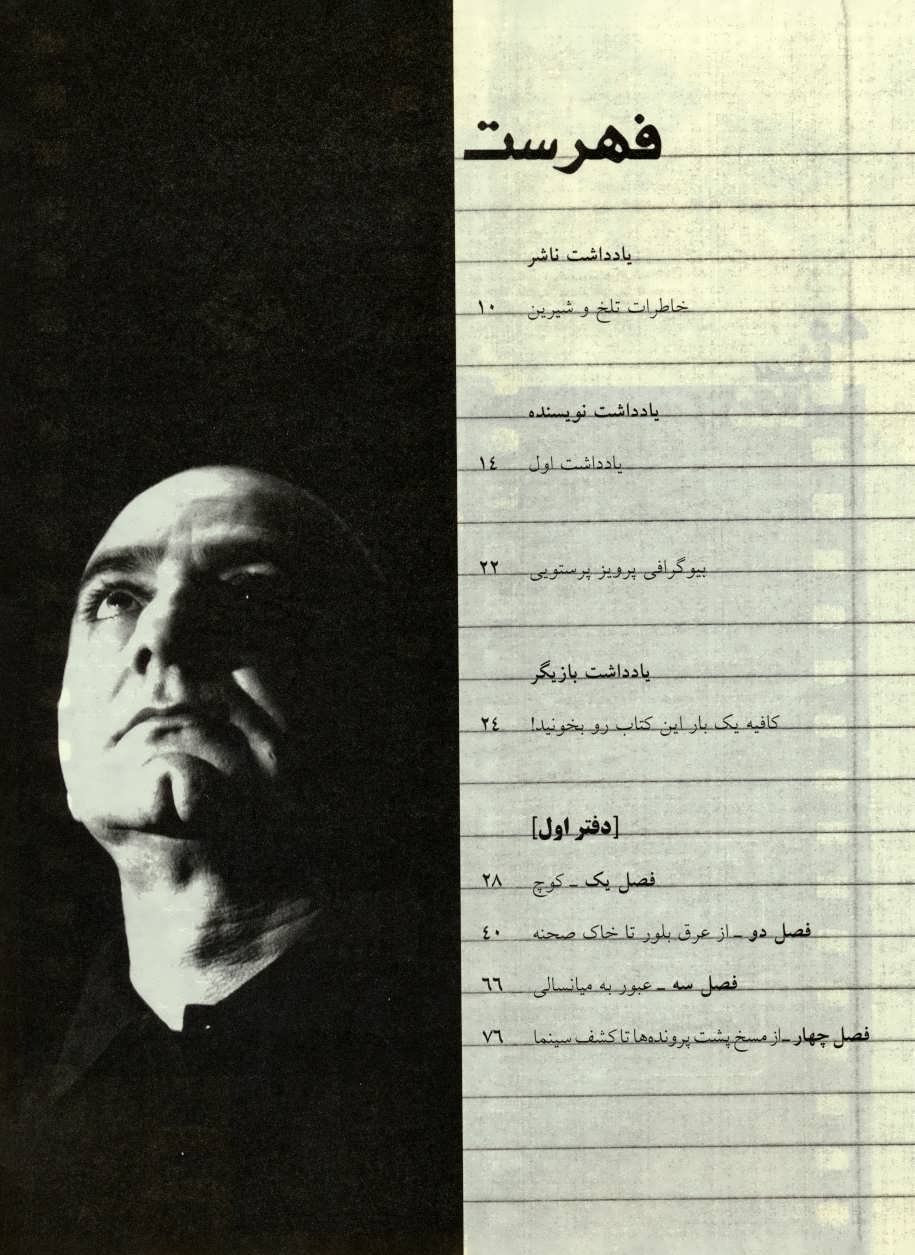 فهرست
یادداشت ناشر
خاطرات تلخ و شیرین ۱۰
یادداشت نویسنده
یادداشت اول ۱٤
بیوگرافی پرویز پرستویی ۲۲
یادداشت بازیگر
کافیه یک بار این کتاب رو بخونید! ۲٤
[دفتر اول]
فصل یک ـ کوچ ۲۸
فصل دو ـ از عرق بلور تا خاک صحنه ٤۰
فصل سه ـ عبور به میانسالی ٦٦
فصل چهار ـ از مسخ پشت پرونده‌ها تا کشف سینما ۷٦